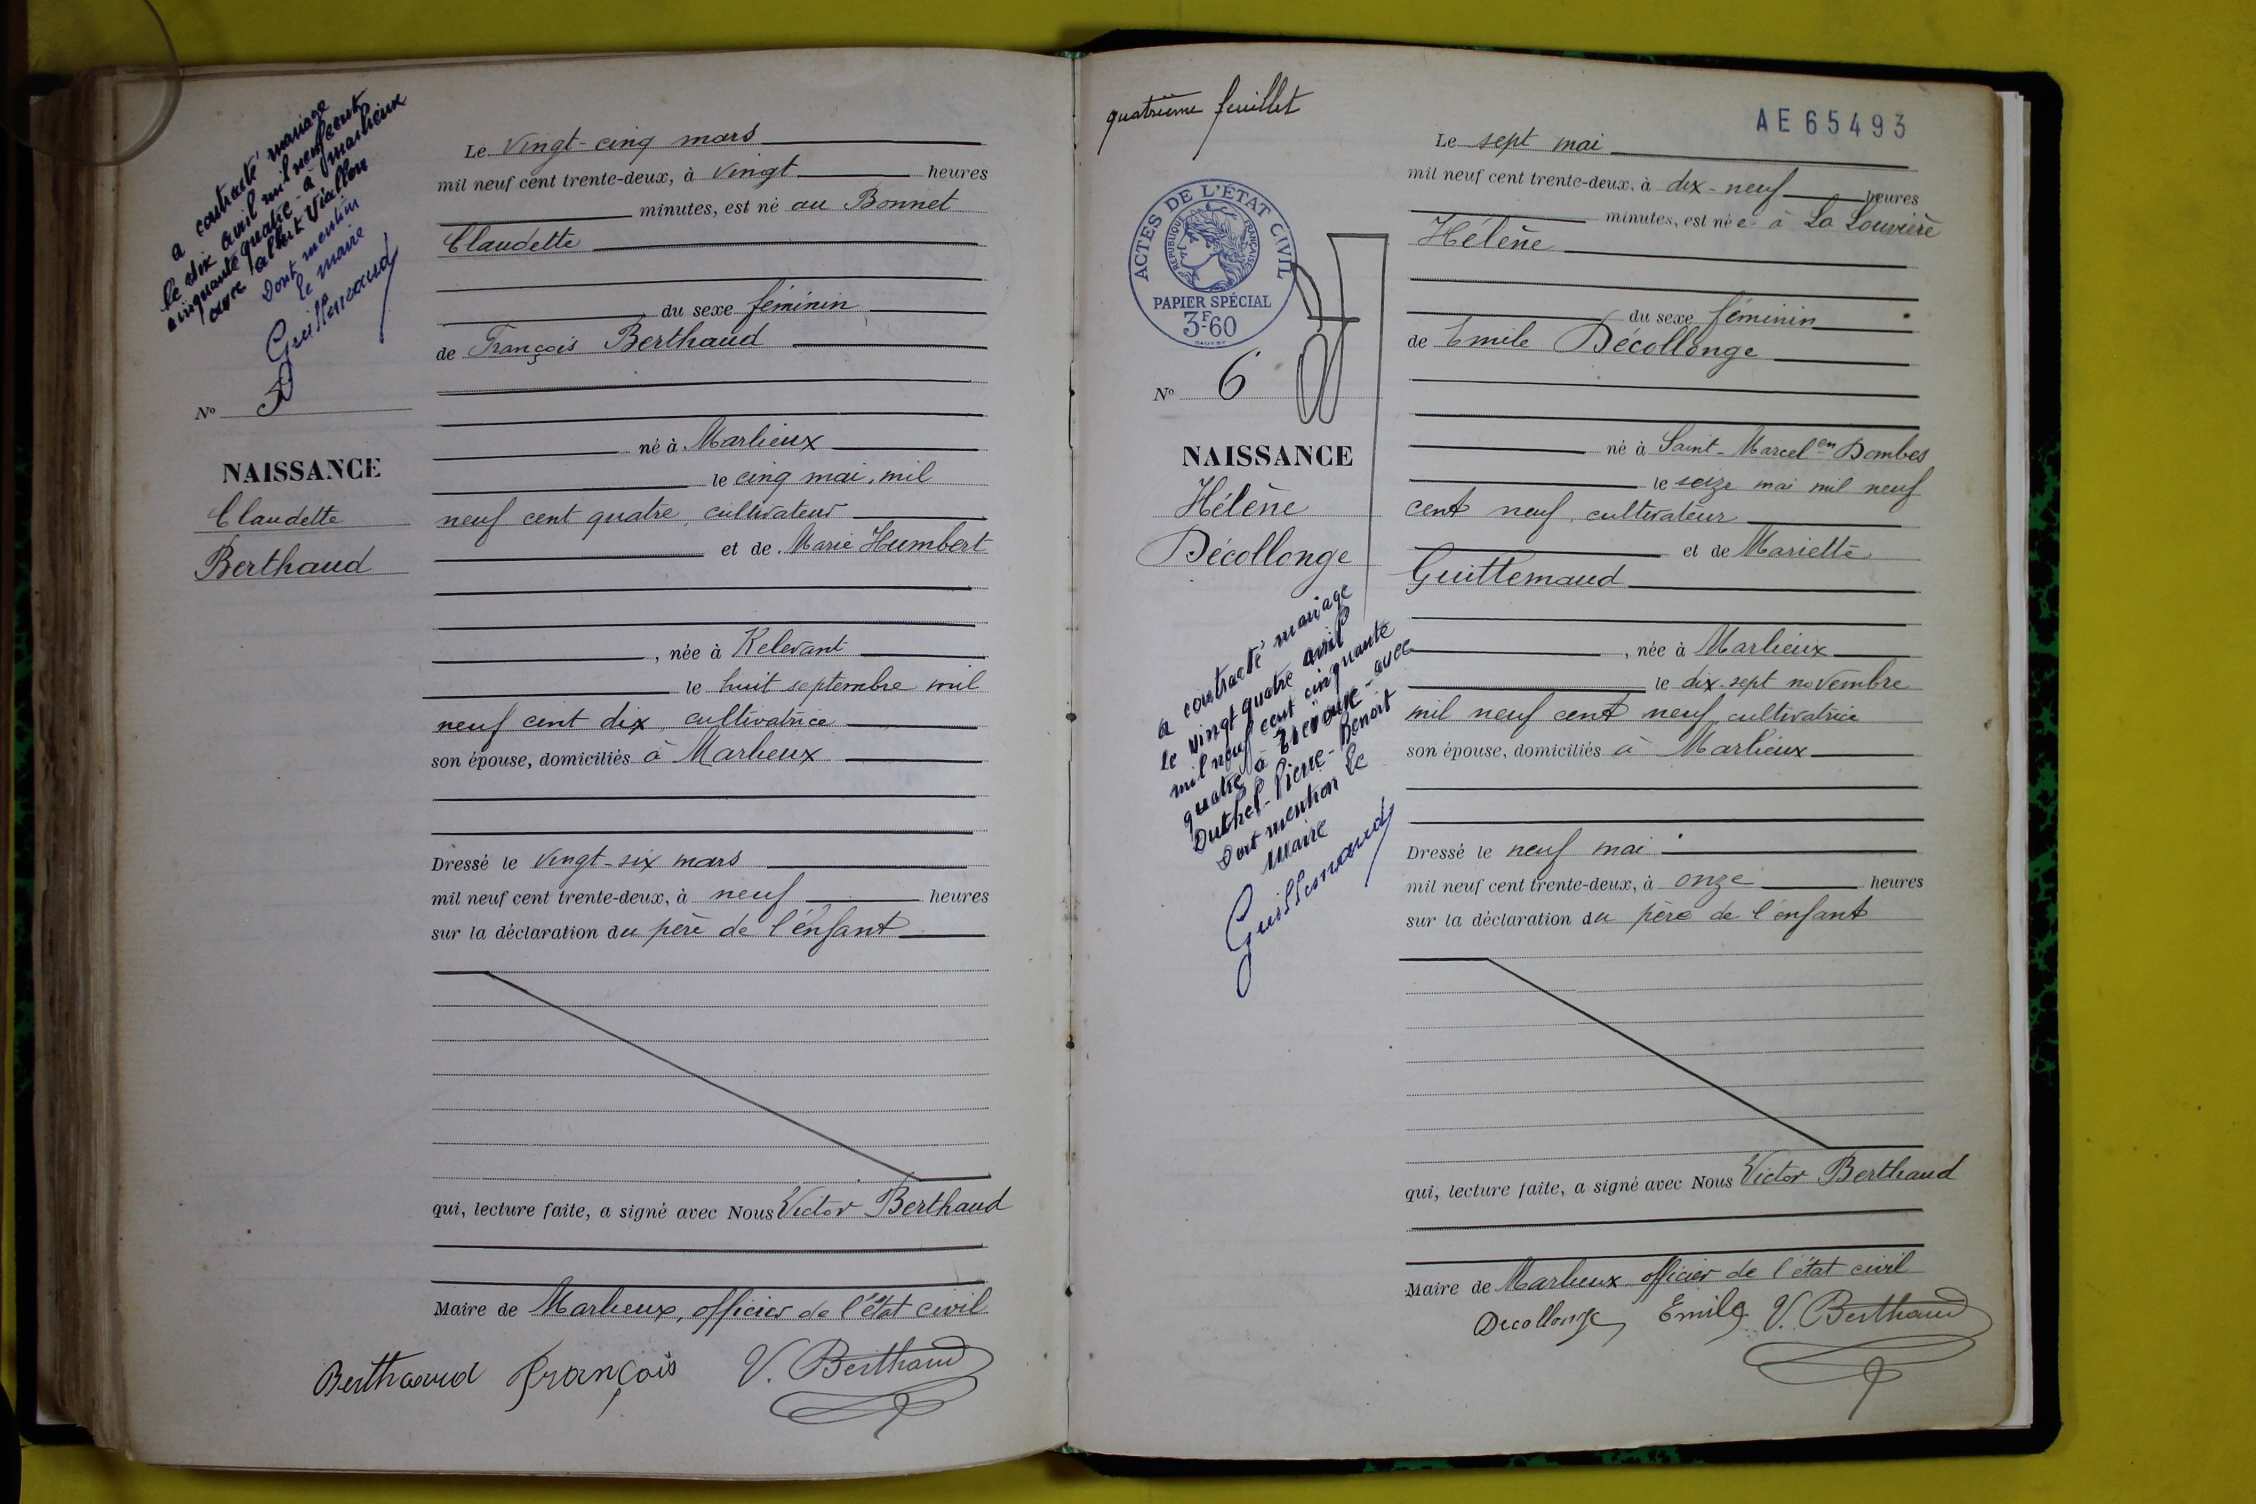 a contracté mariage
le dix avril mil neuf cent
cinquante quatre - à Marlieux
avec Albert Viallon
Dont mention
le maire
Guillemaud
No 5
NAISSANCE
Claudette
Berthaud
Le vingt-cinq mars
mil neuf cent trente-deux, à vingt heures
minutes, est né au Bonnet
Claudette
du sexe féminin
de François Berthaud
né à Marlieux
le cinq mai, mil
neuf cent quatre, cultivateur
et de Marie Humbert
, née à Relevant
le huit septembre mil
neuf cent dix, cultivatrice
son épouse, domiciliés à Marlieux
Dressé le vingt-six mars
mil neuf cent trente-deux, à neuf heures
sur la déclaration du père de l'enfant
qui, lecture faite, a signé avec Nous Victor Berthaud
Maire de Marlieux, officier de l'état civil
Berthaud François V. Berthaud
quatrième feuillet
AE65493
ACTES DE L'ÉTAT CIVIL
RÉPUBLIQUE FRANÇAISE
PAPIER SPÉCIAL
3F60
No 6
NAISSANCE
Hélène
Décollonge
a contracté mariage
le vingt quatre avril
mil neuf cent cinquante
quatre à Trévoux - avec
Duthel - Pierre - Benoit
Dont mention le
Maire
Guillemaud
Le sept mai
mil neuf cent trente-deux, à dix-neuf heures
minutes, est née à La Louvière
Hélène
du sexe féminin
de Emile Décollonge
né à Saint-Marcel en Dombes
le seize mai mil neuf
cent neuf, cultivateur
et de Mariette
Guillemaud
, née à Marlieux
le dix-sept novembre
mil neuf cent neuf, cultivatrice
son épouse, domiciliés à Marlieux
Dressé le neuf mai
mil neuf cent trente-deux, à onze heures
sur la déclaration du père de l'enfant
qui, lecture faite, a signé avec Nous Victor Berthaud
Maire de Marlieux officier de l'état civil
Decollonge Emile V. Berthaud